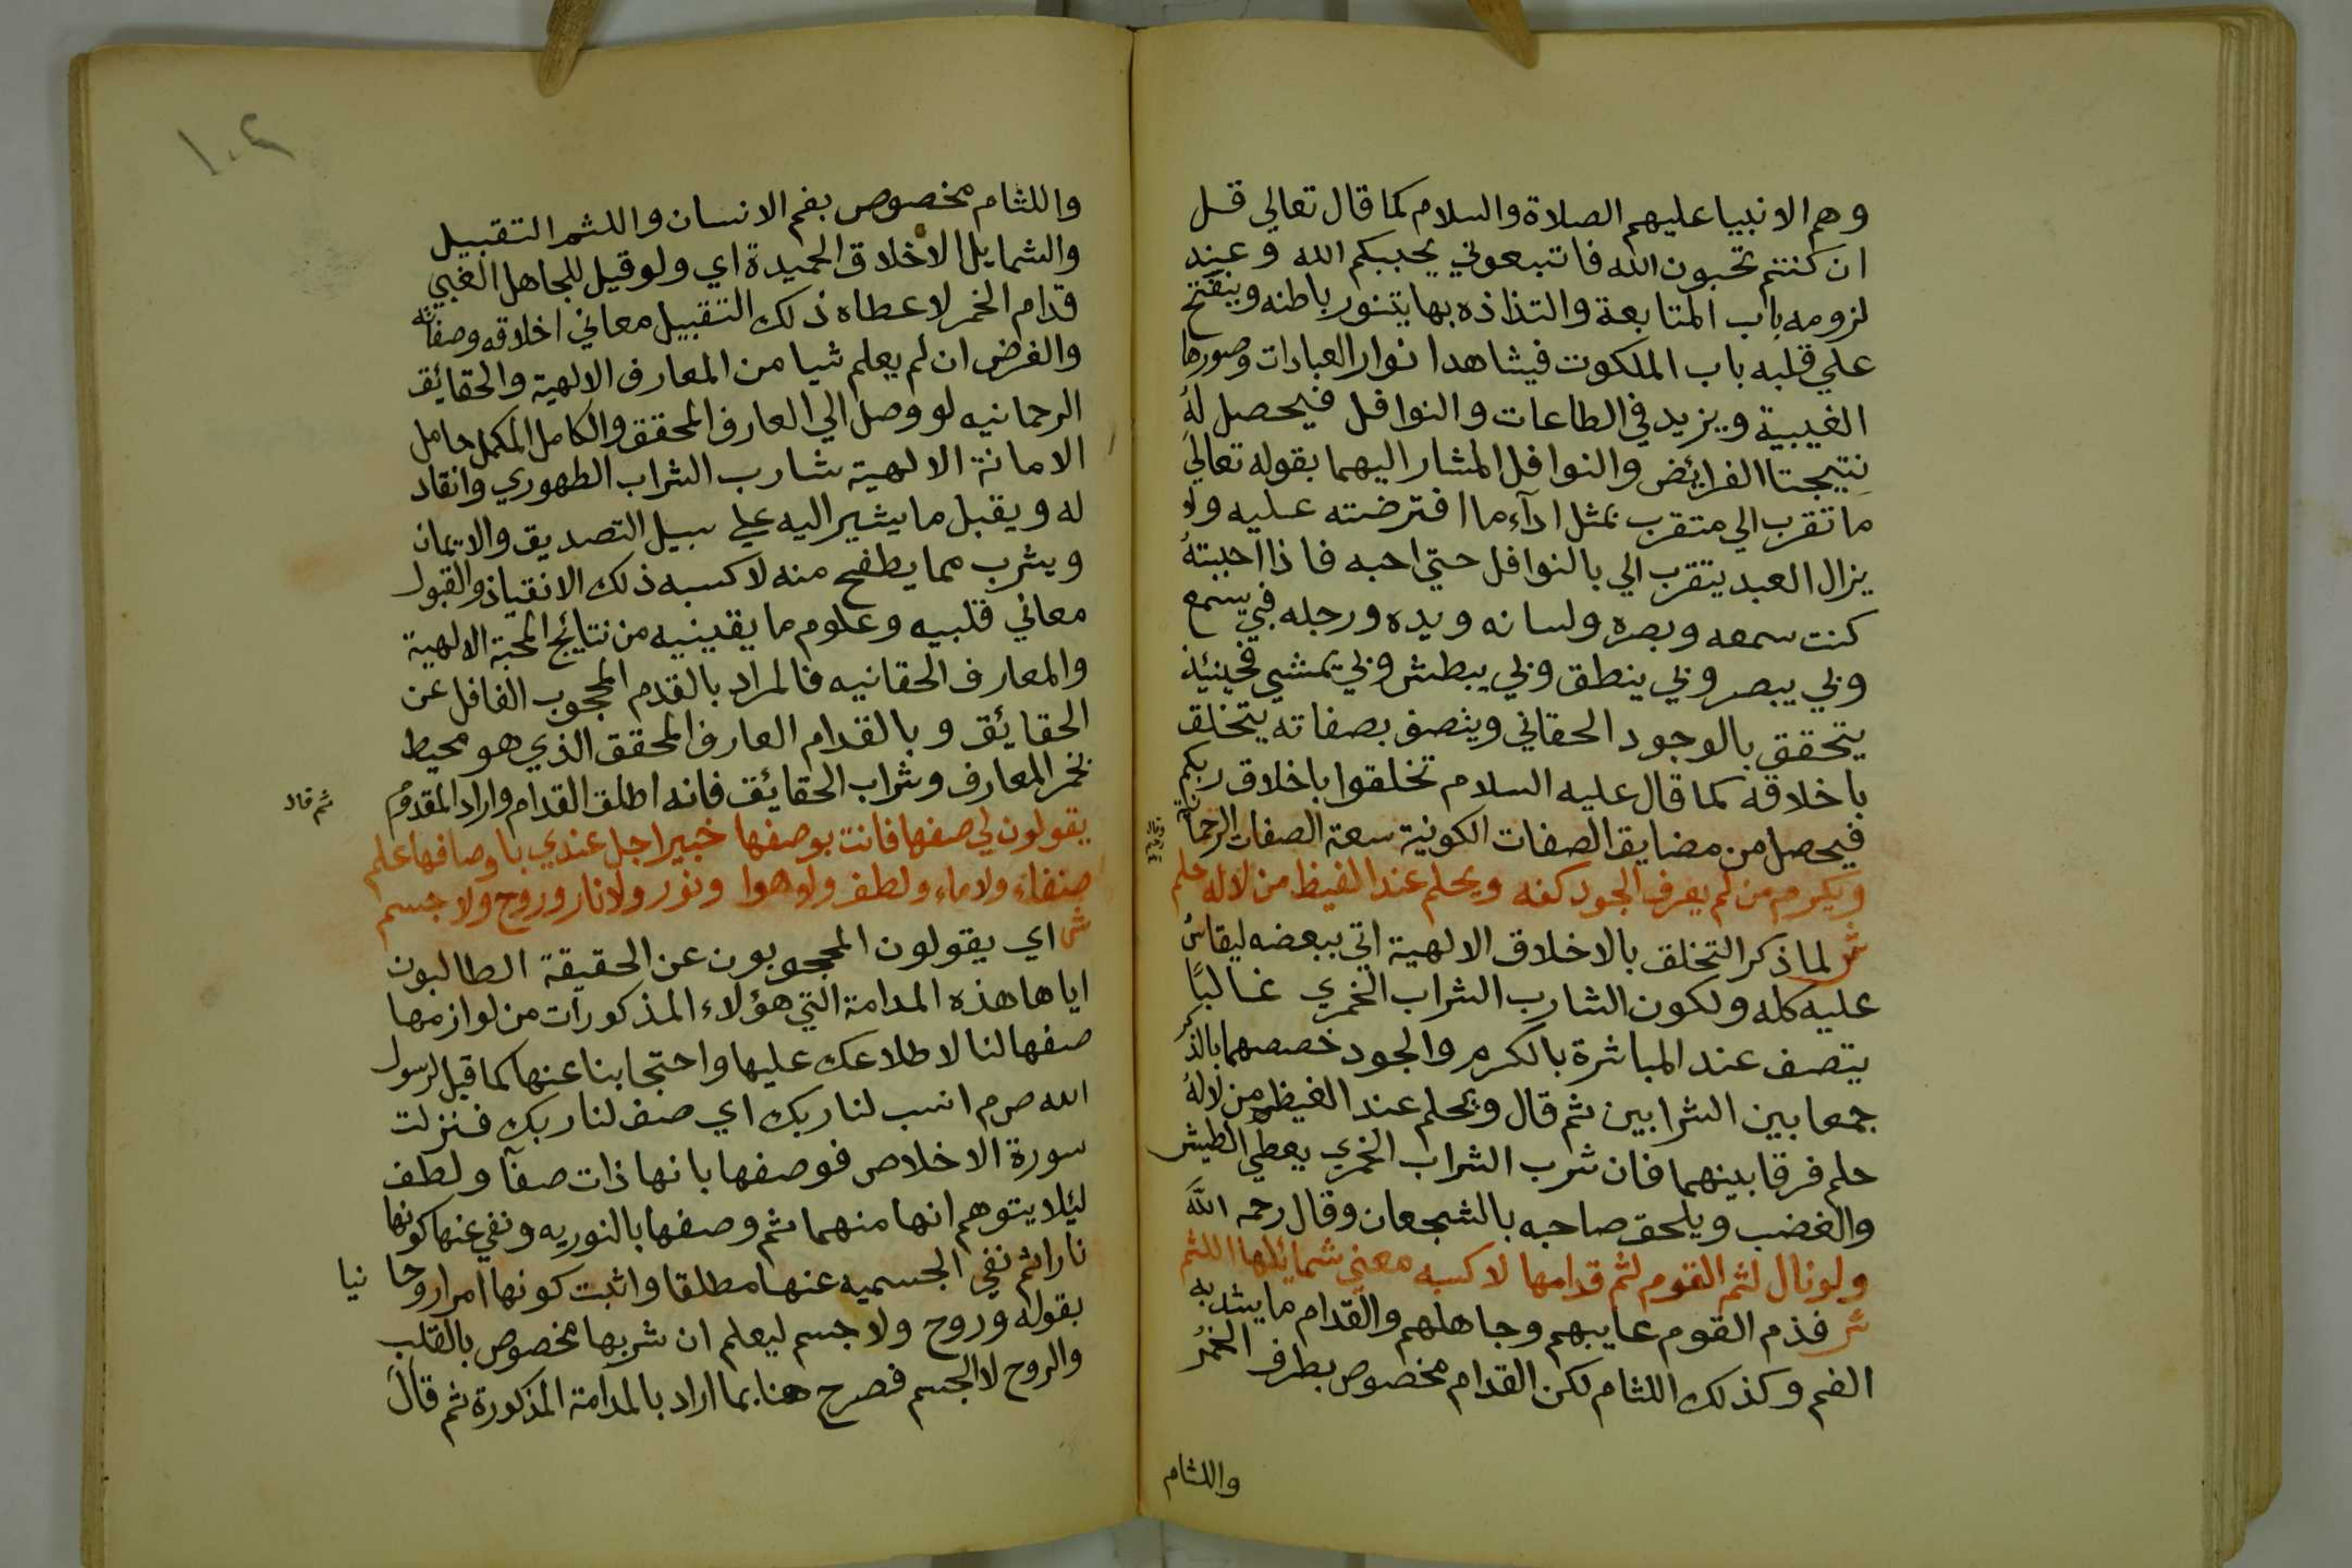 وهم الانبيا عليهم الصلاة والسلام كما قال تعالي قل
ان كنتم تحبون الله فاتبعوني يحببكم الله وعند
لزومه باب المتابعة والتذاذه بها يتنور باطنه وينفتح
علي قلبه باب الملكوت فيشاهد انوار العبادات وصورها
الغيبية ويزيد في الطاعات والنوافل فيحصل له
نتيجتا الفرائض والنوافل المشار اليهما بقوله تعالي
ما تقرب الي متقرب بمثل ادآء ما افترضته عليه ولا
يزال العبد يتقرب الي بالنوافل حتي احبه فاذا احببته
كنت سمعه وبصره ولسانه ويده ورجله فبي يسمع
وبي يبصر وبي ينطق وبي يبطش وبي يمشي فحينئذ
يتحقق بالوجود الحقاني ويتصف بصفاته يتخلق
باخلاقه كما قال عليه السلام تخلقوا باخلاق ربكم
فيحصل من مضايق الصفات الكونية سعة الصفات الرحمانية
ويكرم من لم يعرف الجود كفه ويحلم عند الغيظ من لا له حلم
ش لما ذكر التخلق بالاخلاق الالهية اتي ببعضه ليقاس
عليه كله ولكون الشارب الشراب الخمري غالبًا
يتصف عند المباشرة بالكرم والجود خصصهما بالذكر
جمعا بين الشرابين ثم قال ويحلم عند الغيظ من لا له
حلم فرقا بينهما فان شرب الشراب الخمري يعطي الطيش
والغضب ويلحق صاحبه بالشجعان وقال رحمه الله
ولو نال لثم القوم لثم قدامها لاكسبه معني شمائلها اللثم
ش فدم القوم عايبهم وجاهلهم والقدام ما يشد به
الفم وكذلك اللثام لكن القدام مخصوص بطرف الخمر
واللثام
١٠٢
واللثام مخصوص بفم الانسان واللثم التقبيل
والشمايل الاخلاق الحميدة اي ولو قيل للجاهل الغبي
قدام الخمر لاعطاه ذلك التقبيل معاني اخلاقه وصفاته
والغرض ان لم يعلم شيا من المعارف الالهية والحقائق
الرحمانيه لو وصل الي العارف المحقق والكامل المكمل حامل
الامانة الالهية شارب الشراب الطهوري وانقاد
له ويقبل ما يشير اليه علي سبيل التصديق والايمان
ويشرب مما يطفح منه لاكسبه ذلك الانقياد والقبول
معاني قلبيه وعلوم ما يقينيه من نتايج المحبة الالهية
والمعارف الحقانيه فالمراد بالقدم المحجوب الغافل عن
الحقائق وبالقدام العارف المحقق الذي هو محيط
بخمر المعارف وشراب الحقائق فانه اطلق القدام واراد المقدم
ثم قال
يقولون لي صفها فانت بوصفها خبير اجل عندي باوصافها علم
صفاء ولا ماء ولطف ولا هوا ونور ولا نار وروح ولا جسم
ش اي يقولون المحجوبون عن الحقيقة الطالبون
اياها هذه المدامة التي هؤلاء المذكورات من لوازمها
صفها لنا لاطلاعك عليها واحتجابنا عنها كما قيل لرسول
الله صم انسب لنا ربك اي صف لنا ربك فنزلت
سورة الاخلاص فوصفها بانها ذات صفآ ولطف
ليلا يتوهم انها منهما ثم وصفها بالنوريه ونفي عنها كونها
نارا ثم نفي الجسميه عنها مطلقا واثبت كونها امرا روحانيا
بقوله وروح ولا جسم ليعلم ان شربها مخصوص بالقلب
والروح لا الجسم فصرح هنا بما اراد بالمدامة المذكورة ثم قال